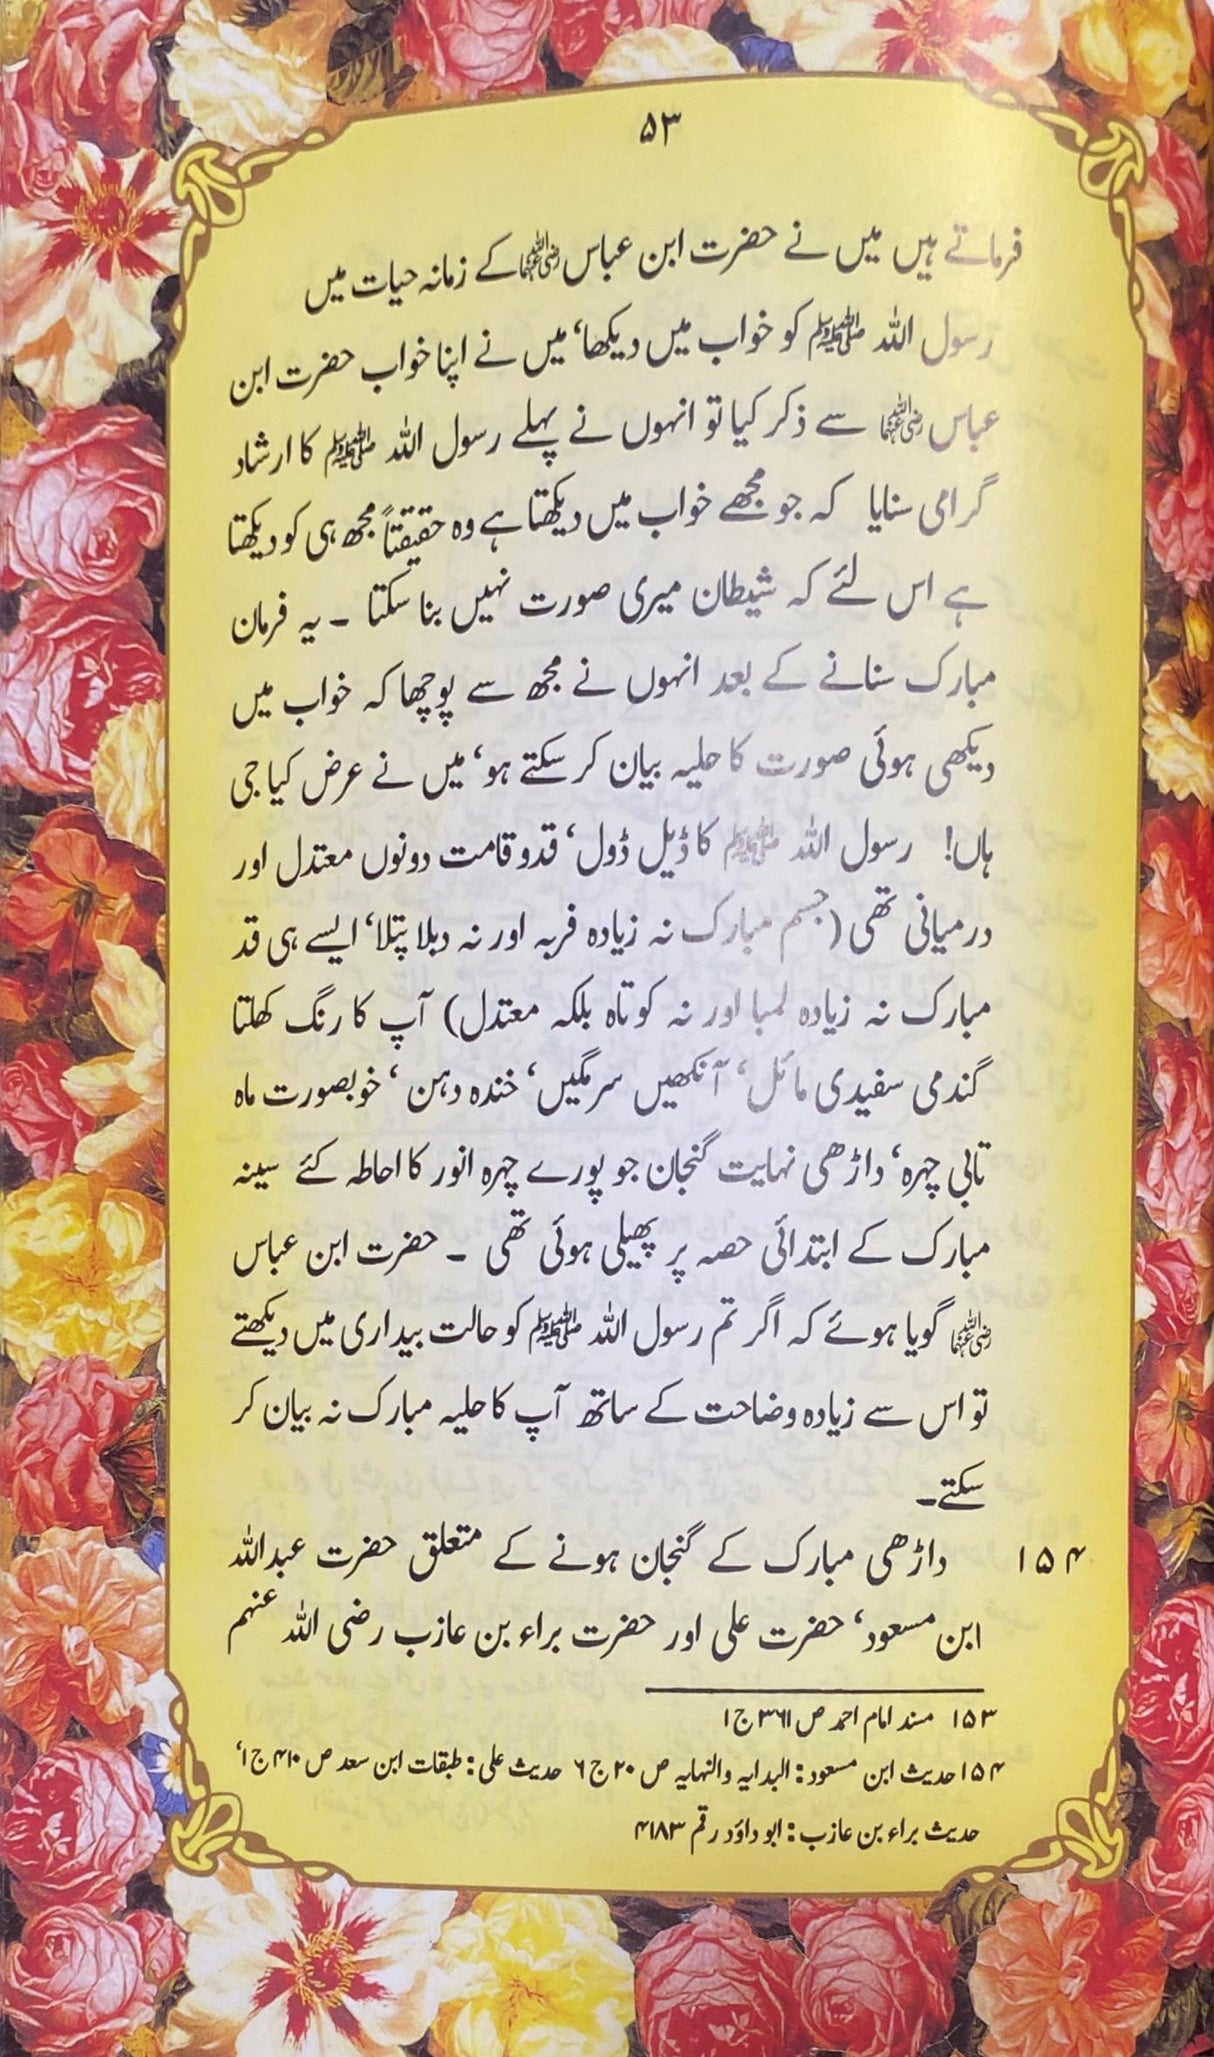 ۵۳
فرماتے ہیں میں نے حضرت ابن عباس رضی اللہ عنہما کے زمانہ حیات میں
رسول اللہ ﷺ کو خواب میں دیکھا، میں نے اپنا خواب حضرت ابن
عباس رضی اللہ عنہما سے ذکر کیا تو انہوں نے پہلے رسول اللہ ﷺ کا ارشاد
گرامی سنایا کہ جو مجھے خواب میں دیکھتا ہے وہ حقیقتاً مجھ ہی کو دیکھتا
ہے اس لئے کہ شیطان میری صورت نہیں بنا سکتا ۔ یہ فرمان
مبارک سنانے کے بعد انہوں نے مجھ سے پوچھا کہ خواب میں
دیکھی ہوئی صورت کا حلیہ بیان کر سکتے ہو، میں نے عرض کیا جی
ہاں! رسول اللہ ﷺ کا ڈیل ڈول، قد و قامت دونوں معتدل اور
درمیانی تھی (جسم مبارک نہ زیادہ فربہ اور نہ دبلا پتلا، ایسے ہی قد
مبارک نہ زیادہ لمبا اور نہ کوتاہ بلکہ معتدل) آپ کا رنگ کھلتا
گندمی سفیدی مائل، آنکھیں سرمگیں، خندہ دہن ، خوبصورت ماہ
تابی چہرہ، داڑھی نہایت گنجان جو پورے چہرہ انور کا احاطہ کئے سینہ
مبارک کے ابتدائی حصہ پر پھیلی ہوئی تھی ۔ حضرت ابن عباس
رضی اللہ عنہما گویا ہوئے کہ اگر تم رسول اللہ ﷺ کو حالت بیداری میں دیکھتے
تو اس سے زیادہ وضاحت کے ساتھ آپ کا حلیہ مبارک نہ بیان کر
سکتے۔
۱۵۴ داڑھی مبارک کے گنجان ہونے کے متعلق حضرت عبداللہ
ابن مسعود، حضرت علی اور حضرت براء بن عازب رضی اللہ عنہم
۱۵۳ مسند امام احمد ص ۳۶۱ ج ۱
۱۵۴ حدیث ابن مسعود: البدایہ والنہایہ ص ۲۰ ج ۶ حدیث علی: طبقات ابن سعد ص ۴۱۰ ج ۱،
حدیث براء بن عازب: ابو داؤد رقم ۴۱۸۳